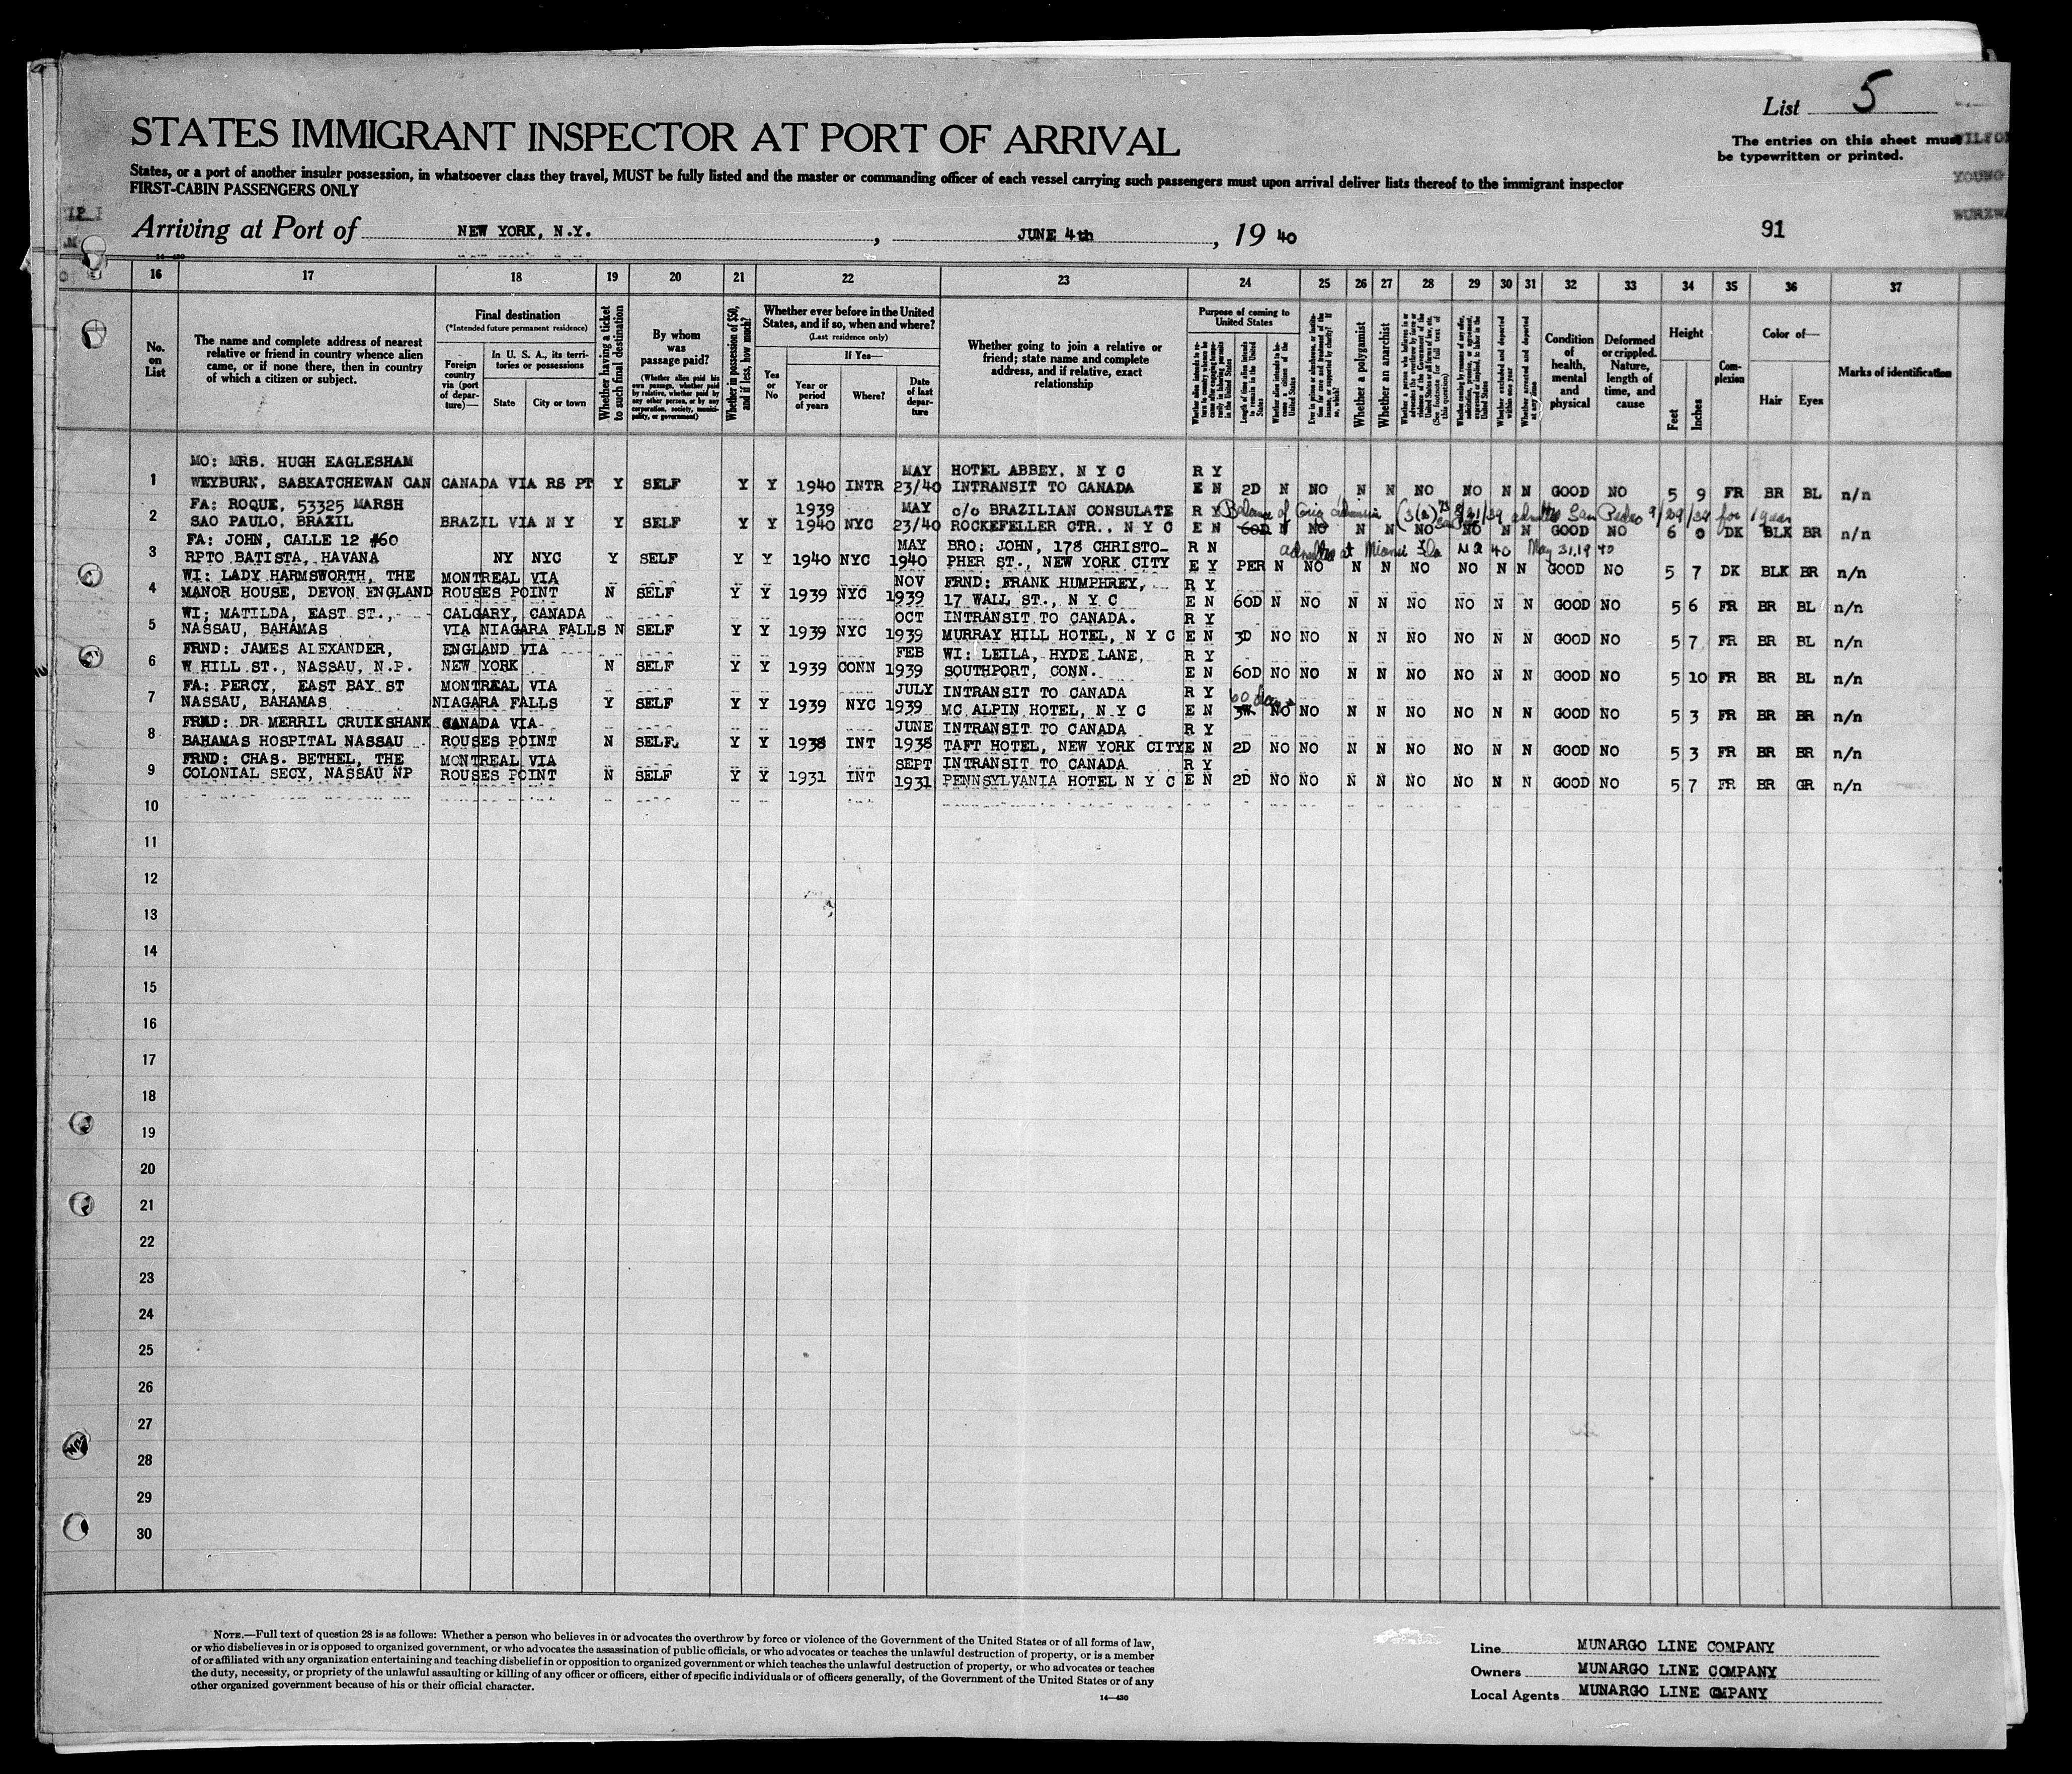 List 5
STATES IMMIGRANT INSPECTOR AT PORT OF ARRIVAL
The entries on this sheet must
be typewritten or printed.
States, or a port of another insular possession, in whatsoever class they travel, MUST be fully listed and the master or commanding officer of each vessel carrying such passengers must upon arrival deliver lists thereof to the immigrant inspector
FIRST-CABIN PASSENGERS ONLY
YOUNG
Arriving at Port of NEW YORK, N.Y. , JUNE 4th , 19 40
91
16 17 18 19 20 21 22 23 24 25 26 27 28 29 30 31 32 33 34 35 36 37
No. on List
The name and complete address of nearest relative or friend in country whence alien came, or if none there, then in country of which a citizen or subject.
Final destination
(*Intended future permanent residence)
Foreign country via (port of departure)—
In U. S. A., its territories or possessions
State
City or town
Whether having a ticket to such final destination
By whom was passage paid?
(Whether alien paid his own passage, whether paid by relative, whether paid by any other person, or by any corporation, society, municipality, or government)
Whether in possession of $50, and if less, how much?
Whether ever before in the United States, and if so, when and where?
(Last residence only)
Yes or No
If Yes—
Year or period of years
Where?
Date of last departure
Whether going to join a relative or friend; state name and complete address, and if relative, exact relationship
Purpose of coming to United States
Length of time alien intends to remain in the United States
Whether alien intends to become a citizen of the United States
Whether a polygamist
Whether an anarchist
(See footnote for full text of this question)
Whether excluded and deported within one year
Whether arrested and deported at any time
Condition of health, mental and physical
Deformed or crippled. Nature, length of time, and cause
Height
Feet
Inches
Complexion
Color of—
Hair
Eyes
Marks of identification
MO: MRS. HUGH EAGLESHAM MAY HOTEL ABBEY, N Y C R Y
1 WEYBURK, SASKATCHEWAN CAN CANADA VIA RS PT Y SELF Y Y 1940 INTR 23/40 INTRANSIT TO CANADA E N 2D N NO N N NO NO N N GOOD NO 5 9 FR BR BL n/n
FA: ROQUE, 53325 MARSH 1939 MAY c/o BRAZILIAN CONSULATE R Y Balance of orig admission (3(2) admitted San Pedro 9/29/39 for 1 year
2 SAO PAULO, BRAZIL BRAZIL VIA N Y Y SELF Y Y 1940 NYC 23/40 ROCKEFELLER CTR., N Y C E N 60D N NO N N NO NO N N GOOD NO 6 0 DK BLK BR n/n
FA: JOHN, CALLE 12 #60 MAY BRO: JOHN, 178 CHRISTO- R N admitted at Miami Fla May 31, 1940
3 RPTO BATISTA, HAVANA NY NYC Y SELF Y Y 1940 NYC 1940 PHER ST., NEW YORK CITY E Y PER N NO N N NO NO N N GOOD NO 5 7 DK BLK BR n/n
WI: LADY HARMSWORTH, THE MONTREAL VIA NOV FRND: FRANK HUMPHREY, R Y
4 MANOR HOUSE, DEVON ENGLAND ROUSES POINT N SELF Y Y 1939 NYC 1939 17 WALL ST., N Y C E N 60D N NO N N NO NO N N GOOD NO 5 6 FR BR BL n/n
WI; MATILDA, EAST ST., CALGARY, CANADA OCT INTRANSIT TO CANADA. R Y
5 NASSAU, BAHAMAS VIA NIAGARA FALLS N SELF Y Y 1939 NYC 1939 MURRAY HILL HOTEL, N Y C E N 3D NO NO N N NO NO N N GOOD NO 5 7 FR BR BL n/n
FRND: JAMES ALEXANDER, ENGLAND VIA FEB WI: LEILA, HYDE LANE, R Y
6 W HILL ST., NASSAU, N.P. NEW YORK N SELF Y Y 1939 CONN 1939 SOUTHPORT, CONN. E N 60D NO NO N N NO NO N N GOOD NO 5 10 FR BR BL n/n
FA: PERCY, EAST BAY ST MONTREAL VIA JULY INTRANSIT TO CANADA R Y 60 days
7 NASSAU, BAHAMAS NIAGARA FALLS Y SELF Y Y 1939 NYC 1939 MC ALPIN HOTEL, N Y C E N 3W NO NO N N NO NO N N GOOD NO 5 3 FR BR BR n/n
FRND: DR MERRIL CRUIKSHANK CANADA VIA JUNE INTRANSIT TO CANADA R Y
8 BAHAMAS HOSPITAL NASSAU ROUSES POINT N SELF. Y Y 1938 INT 1938 TAFT HOTEL, NEW YORK CITY E N 2D NO NO N N NO NO N N GOOD NO 5 3 FR BR BR n/n
FRND: CHAS. BETHEL, THE MONTREAL VIA SEPT INTRANSIT TO CANADA R Y
9 COLONIAL SECY, NASSAU NP ROUSES POINT N SELF Y Y 1931 INT 1931 PENNSYLVANIA HOTEL N Y C E N 2D NO NO N N NO NO N N GOOD NO 5 7 FR BR GR n/n
10
11
12
13
14
15
16
17
18
19
20
21
22
23
24
25
26
27
28
29
30
NOTE.—Full text of question 28 is as follows: Whether a person who believes in or advocates the overthrow by force or violence of the Government of the United States or of all forms of law,
or who disbelieves in or is opposed to organized government, or who advocates the assassination of public officials, or who advocates or teaches the unlawful destruction of property, or is a member
of or affiliated with any organization entertaining and teaching disbelief in or opposition to organized government or which teaches the unlawful destruction of property, or who advocates or teaches
the duty, necessity, or propriety of the unlawful assaulting or killing of any officer or officers, either of specific individuals or of officers generally, of the Government of the United States or of any
other organized government because of his or their official character.
14—430
Line MUNARGO LINE COMPANY
Owners MUNARGO LINE COMPANY
Local Agents MUNARGO LINE OMPANY